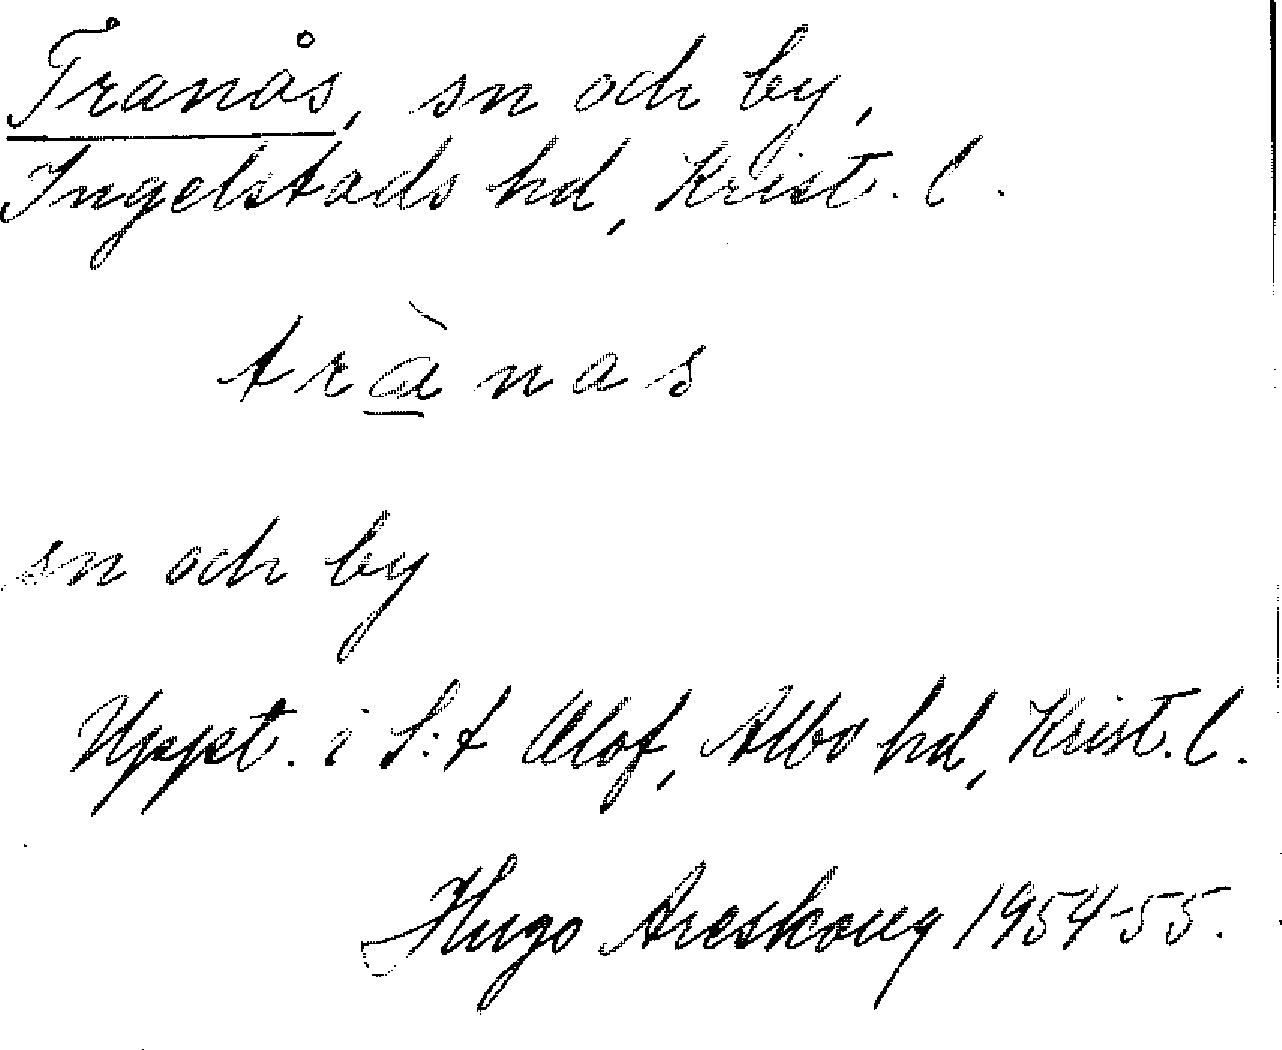 Tranås, sn och by,
Ingelstads hd, Krist. l.
trànas
sn och by
Uppt. i S:t Olof, Albo hd, Krist. l.
Hugo Areskoug 1954-55.